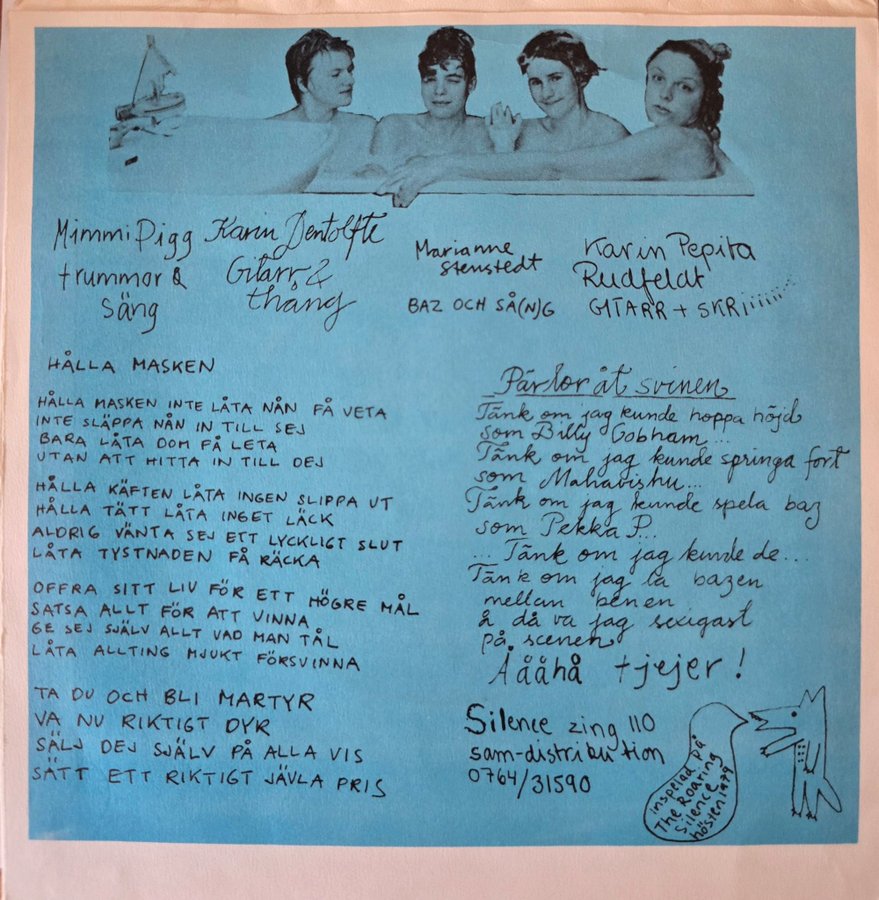 Mimmi Pigg
trummor &
Säng
Karin Dentolfte
Gitarr &
thång
Marianne
Stenstedt
BAZ OCH SÅ(N)G
Karin Pepita
Rudfeldt
GITARR + SKRIiiiiii
HÅLLA MASKEN
HÅLLA MASKEN INTE LÅTA NÅN FÅ VETA
INTE SLÄPPA NÅN IN TILL SEJ
BARA LÅTA DOM FÅ LETA
UTAN ATT HITTA IN TILL DEJ
HÅLLA KÄFTEN LÅTA INGEN SLIPPA UT
HÅLLA TÄTT LÅTA INGET LÄCK
ALDRIG VÄNTA SEJ ETT LYCKLIGT SLUT
LÅTA TYSTNADEN FÅ RÄCKA
OFFRA SITT LIV FÖR ETT HÖGRE MÅL
SATSA ALLT FÖR ATT VINNA
GE SEJ SJÄLV ALLT VAD MAN TÅL
LÅTA ALLTING MJUKT FÖRSVINNA
TA DU OCH BLI MARTYR
VA NU RIKTIGT DYR
SÄLJ DEJ SJÄLV PÅ ALLA VIS
SÄTT ETT RIKTIGT JÄVLA PRIS
Pärlor åt svinen
Tänk om jag kunde hoppa höjd
som Billy Cobham...
Tänk om jag kunde springa fort
som Mahavishu...
Tänk om jag kunde spela baz
som Pekka P...
... Tänk om jag kunde de...
Tänk om jag la bazen
mellan benen
å då va jag sexigast
på scenen
Å ååhå tjejer!
Silence zing 110
sam-distribution
0764/31590
inspelad på
The Roaring
Silence
hösten 1979